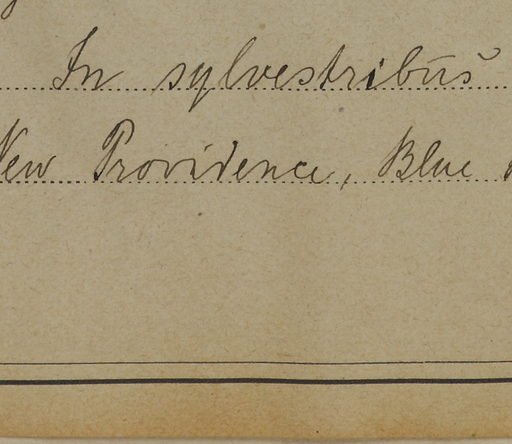 In sylvestribus
New Providence, Blue